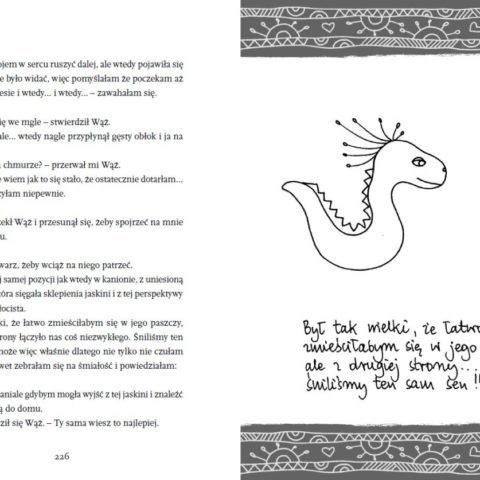 ojem w sercu ruszyć dalej, ale wtedy pojawiła się
e było widać, więc pomyślałam że poczekam aż
esie i wtedy... i wtedy... – zawahałam się.
ię we mgle – stwierdził Wąż.
ale... wtedy nagle przypłynął gęsty obłok i ja na
chmurze? – przerwał mi Wąż.
e wiem jak to się stało, że ostatecznie dotarłam...
zyłam niepewnie.
zekł Wąż i przesunął się, żeby spojrzeć na mnie
u.
warz, żeby wciąż na niego patrzeć.
j samej pozycji jak wtedy w kanionie, z uniesioną
tóra sięgała sklepienia jaskini i z tej perspektywy
łocista.
ki, że łatwo zmieściłabym się w jego paszczy,
rony łączyło nas coś niezwykłego. Śniliśmy ten
może więc właśnie dlatego nie tylko nie czułam
wet zebrałam się na śmiałość i powiedziałam:
aniale gdybym mogła wyjść z tej jaskini i znaleźć
ą do domu.
ził się Wąż. – Ty sama wiesz to najlepiej.
226
Był tak wielki, że łatwo
zmieściłabym się w jego
ale z drugiej strony...
śniliśmy ten sam sen !!